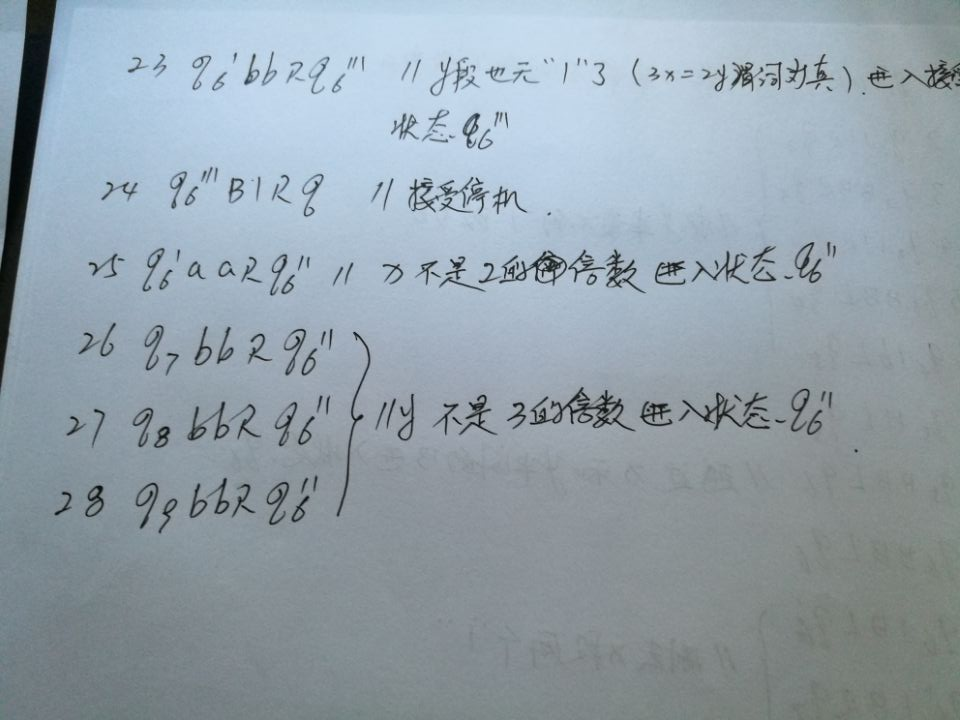 23 q₆' b b R q₆''' // y段也无"1"了 (3x=2y谓词为真). 进入接受
状态 q₆'''
24 q₆''' B 1 R q // 接受停机.
25 q₆' a a R q₆'' // x 不是2的倍数 进入状态 q₆''
26 q₇ b b R q₆''
27 q₈ b b R q₆'' // y 不是3的倍数 进入状态 q₆''
28 q₉ b b R q₆''